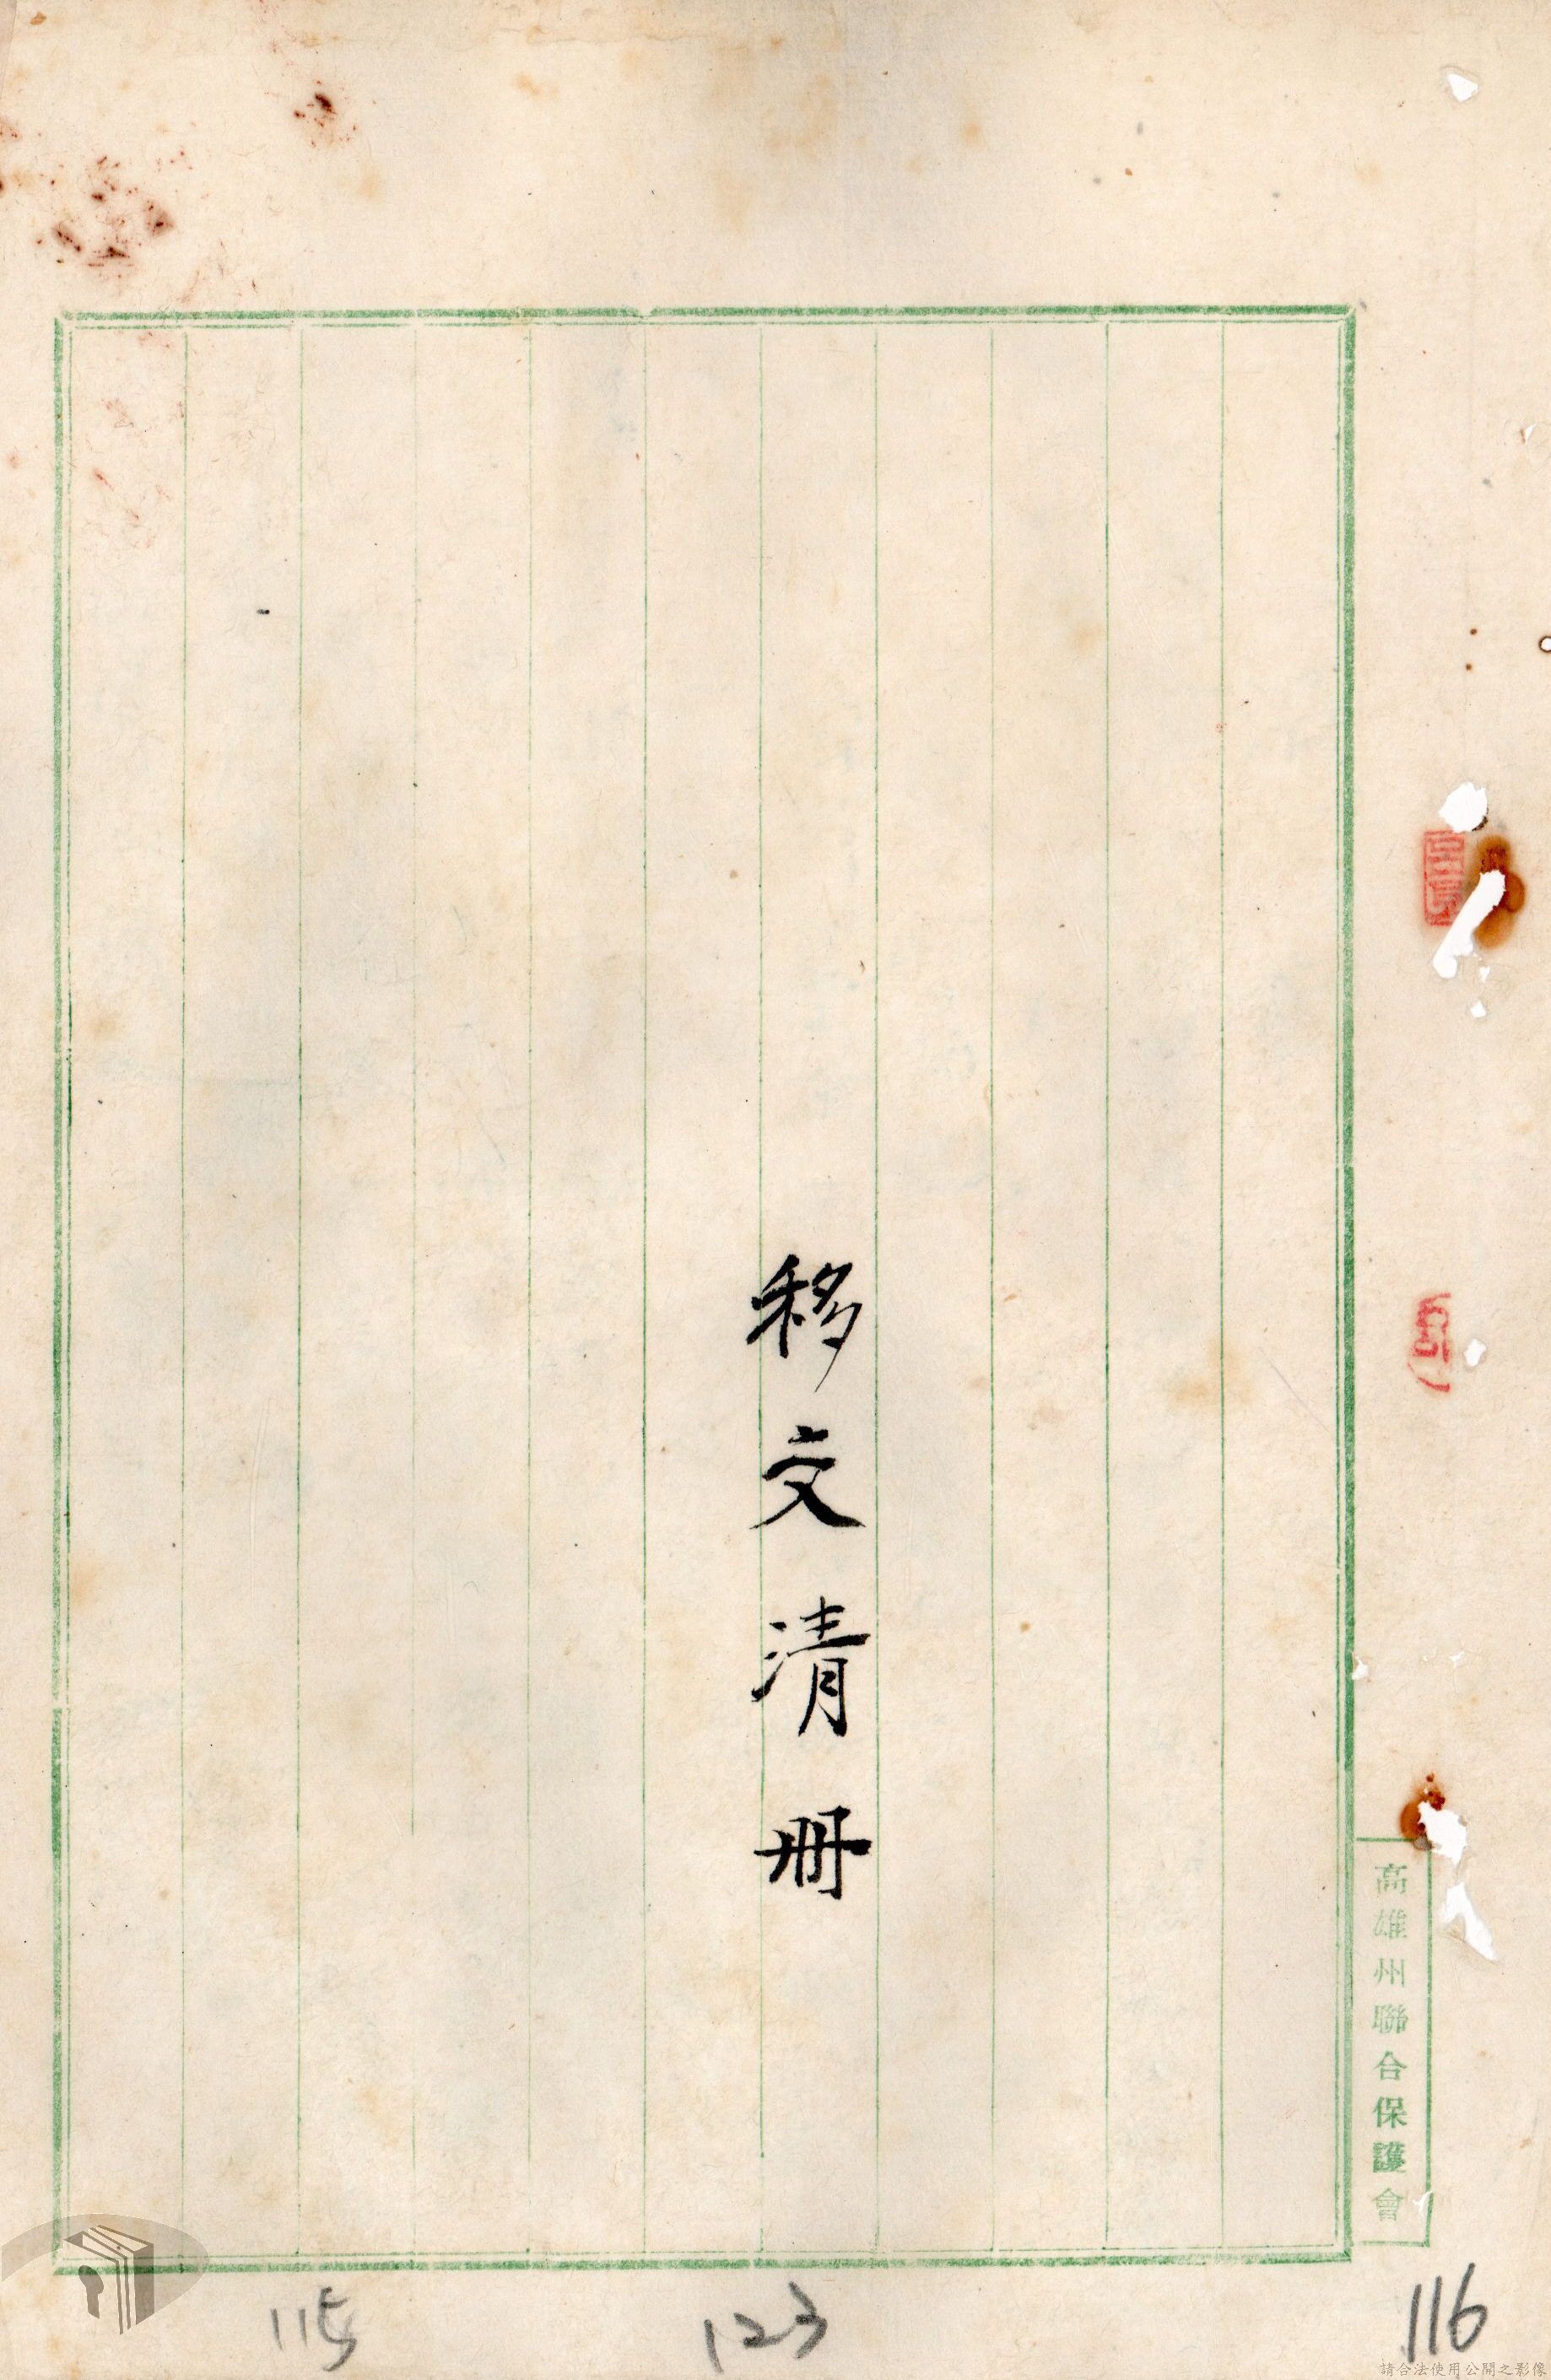 高雄州聯合保護會
移文清冊
115
123
116
請合法使用公開之影像